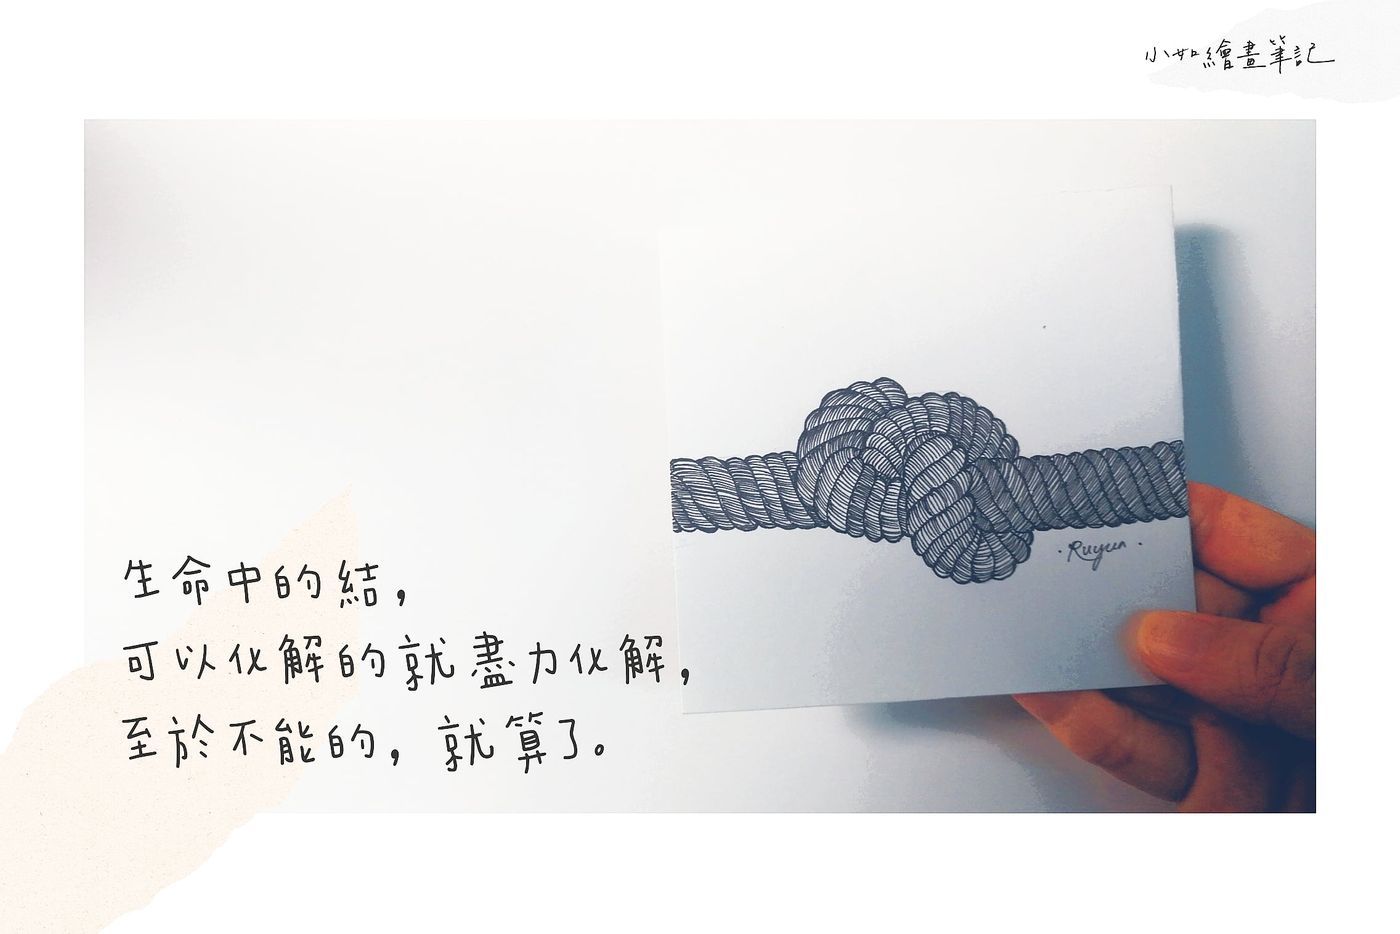 小如繪畫筆記
生命中的結，
可以化解的就盡力化解，
至於不能的，就算了。
· Ruyun ·